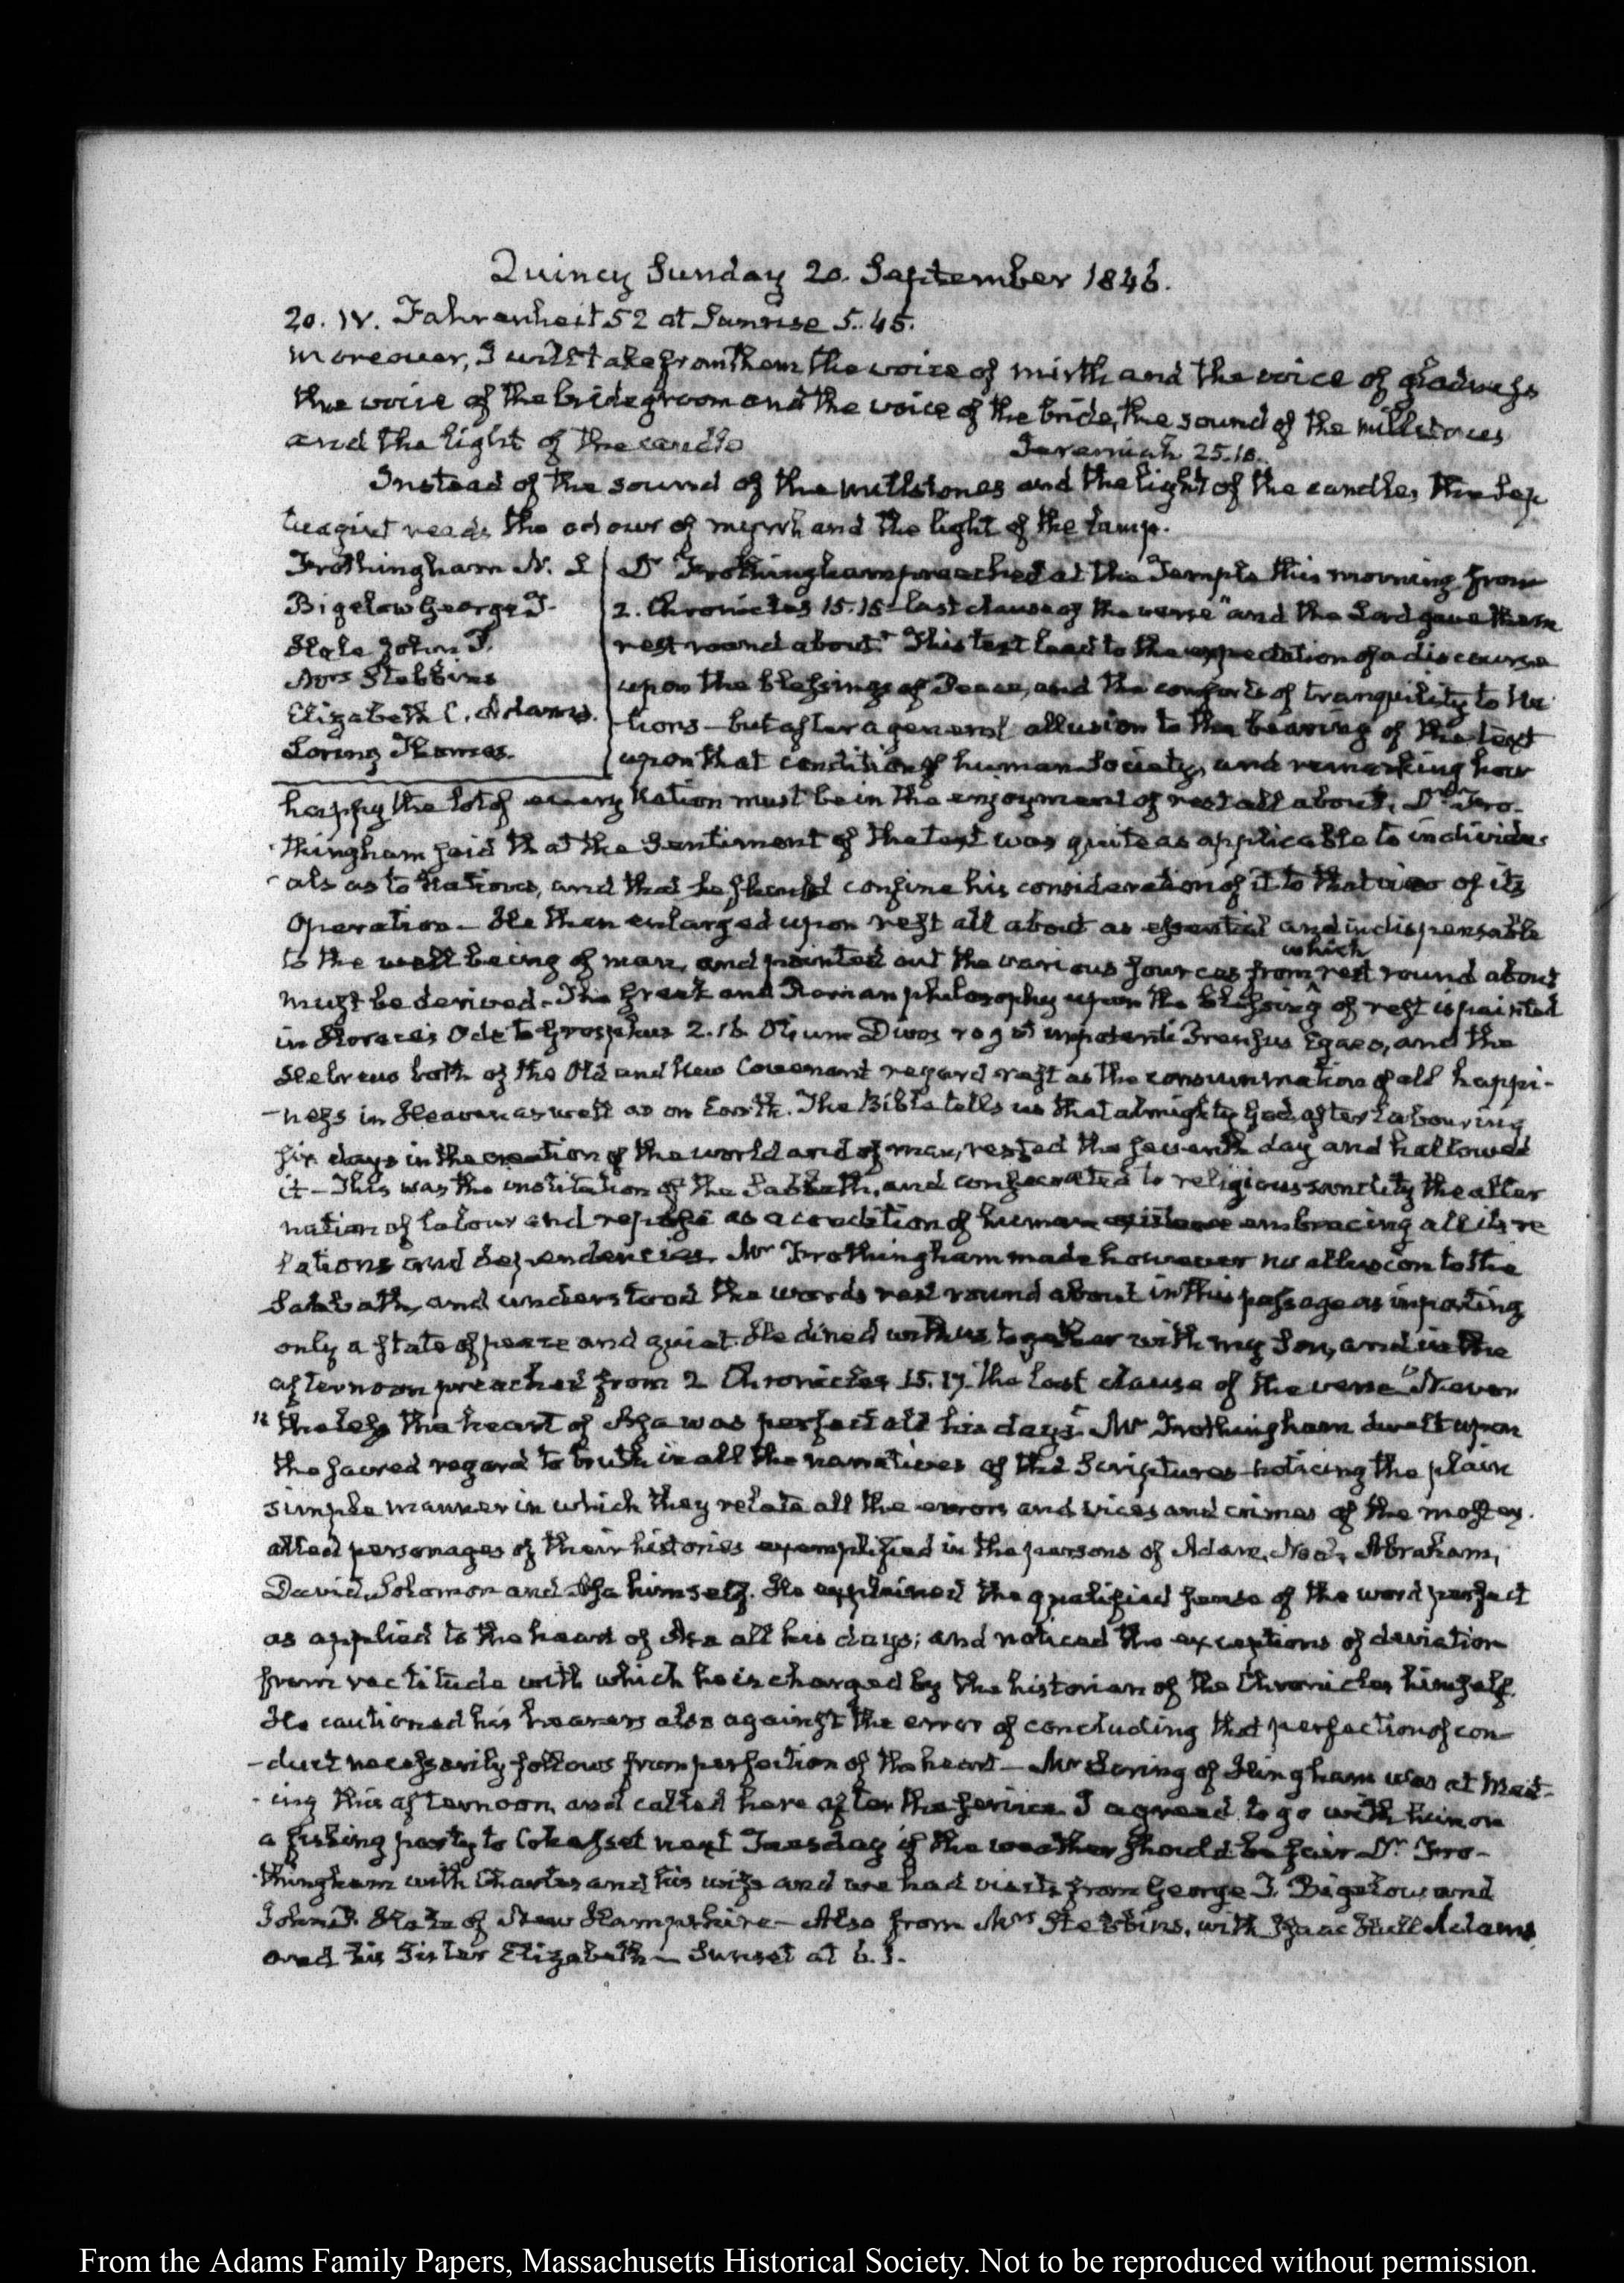 Quincy Sunday 20. September 1846.
20. IV. Fahrenheit 52 at Sunrise 5.45.
Moreover, I will take from them the voice of mirth and the voice of gladness
the voice of the bridegroom and the voice of the bride, the sound of the millstones
and the light of the candle Jeremiah 25.10.
Instead of the sound of the millstones and the light of the candle, the Sep
tuagint reads the odour of myrrh and the light of the lamp.
Frothingham N. L
Bigelow George T.
Hale John P.
Mrs Stebbins
Elizabeth C. Adams.
Loring Thomas.
Dr Frothingham preached at the Temple this morning from
2. Chronicles 15.15 last clause of the verse "and the Lord gave them
rest round about." This text lead to the expectation of a discourse
upon the blessings of Peace, and the comforts of tranquility to Na
-tions - but after a general allusion to the bearing of the text
upon that condition of human Society, and remarking how
happy the lot of every Nation must be in the enjoyment of rest all about, Dr Fro-
-thingham said that the Sentiment of the text was quite as applicable to individu-
-als as to Nations, and that he should confine his consideration of it to that view of its
Operation - He then enlarged upon rest all about as essential and indispensable
to the well being of man, and pointed out the various sources from which rest round about
must be derived - The Greek and Roman philosophy upon the blessing of rest is painted
in Horace's Ode to Grosphus 2.16 Otium Divos rogat in patenti Prensus Egaeo, and the
Hebrews both of the Old and New Covenant regard rest as the consummation of all happi-
-ness in Heaven as well as on Earth. The Bible tells us that almighty God, after labouring
six days in the creation of the world and of man, rested the seventh day and hallowed
it - This was the institution of the Sabbath, and consecrated to religious sanctity the alter
nation of labour and repose as a condition of human existence embracing all its re
lations and dependencies. Mr Frothingham made however no allusion to the
Sabbath, and understood the words rest round about in this passage as importing
only a state of peace and quiet. He dined with us together with my Son, and in the
afternoon preached from 2 Chronicles 15.17. the last clause of the verse "Never
"theless the heart of Asa was perfect all his days." Mr Frothingham dwelt upon
the sacred regard to truth in all the narratives of the Scriptures noticing the plain
simple manner in which they relate all the errors and vices and crimes of the most ex.
alted personages of their histories exemplified in the persons of Adam, Noah, Abraham,
David, Solomon and Asa himself. He explained the qualified sense of the word perfect
as applied to the heart of Asa all his days; and noticed the exceptions of deviation
from rectitude with which he is charged by the historian of the Chronicles himself.
He cautioned his hearers also against the error of concluding that perfection of con-
-duct necessarily follows from perfection of the heart - Mr Loring of Hingham was at Meet-
-ing this afternoon, and called here after the service. I agreed to go with him on
a fishing party to Cohasset next Tuesday if the weather should be fair. Dr Fro-
-thingham with Charles and his wife and we had visits from George T. Bigelow and
John P. Hale of New Hampshire - Also from Mrs Stebbins, with Isaac Hull Adams
and his Sister Elizabeth - Sunset at 6.1.
From the Adams Family Papers, Massachusetts Historical Society. Not to be reproduced without permission.